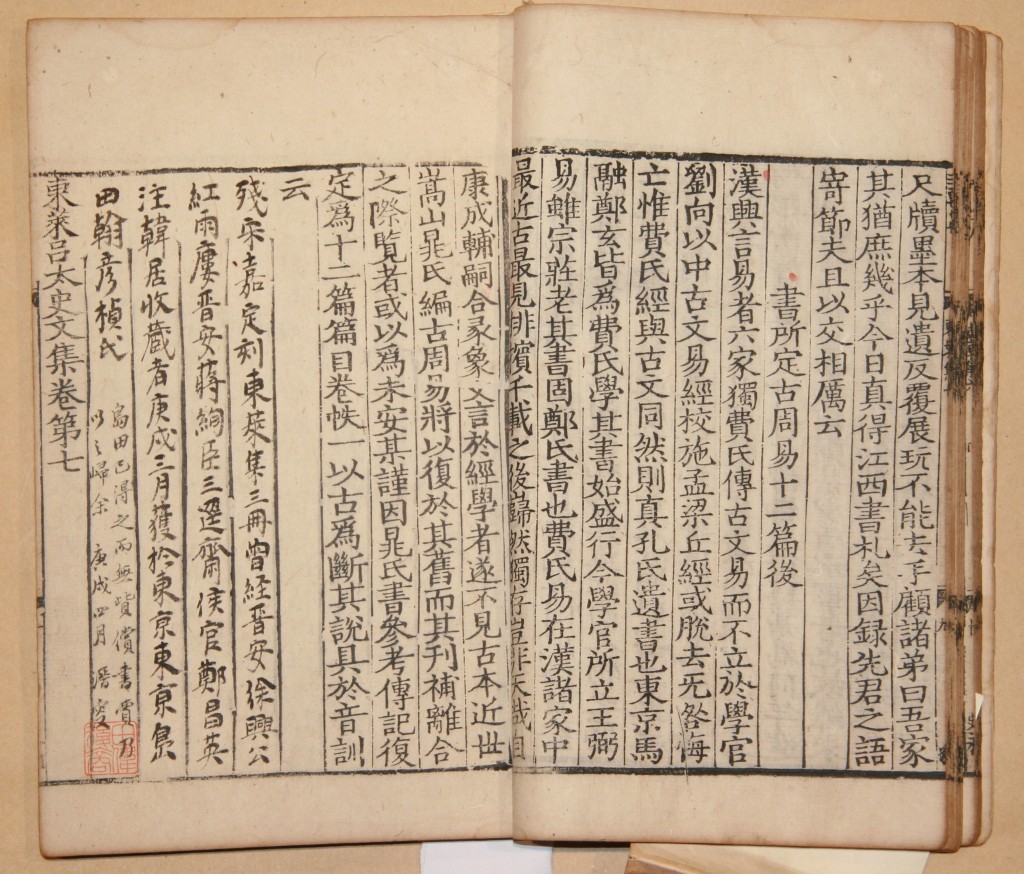 尺牘墨本見遺反覆展玩不能去手顧諸弟曰吾家
其猶庶幾乎今日真得江西書札矣因録先君之語
寄節夫且以交相厲云
書所定古周易十二篇後
漢興言易者六家獨費氏傳古文易而不立於學官
劉向以中古文易經校施孟梁丘經或脫去无咎悔
亡惟費氏經與古文同然則真孔氏遺書也東京馬
融鄭玄皆爲費氏學其書始盛行今學官所立王弼
易雖宗莊老其書固鄭氏書也費氏易在漢諸家中
最近古最見排擯千載之後巋然獨存豈非天哉自
康成輔嗣合彖象文言於經學者遂不見古本近世
嵩山晁氏編古周易將以復於其舊而其刊補離合
之際覽者或以爲未安某謹因晁氏書參考傳記復
定爲十二篇篇目卷帙一以古爲斷其說具於音訓
云
殘宋嘉定刻東萊集三冊曾經晉安徐興公
紅雨廔晉安蔣絢臣三選齋侯官鄭昌英
注韓居收藏者庚戌三月獲於東京東京島
田翰彥楨氏
島田已得之而無貲償書賈乃
以之歸余 庚戌四月
東萊呂太史文集卷第七